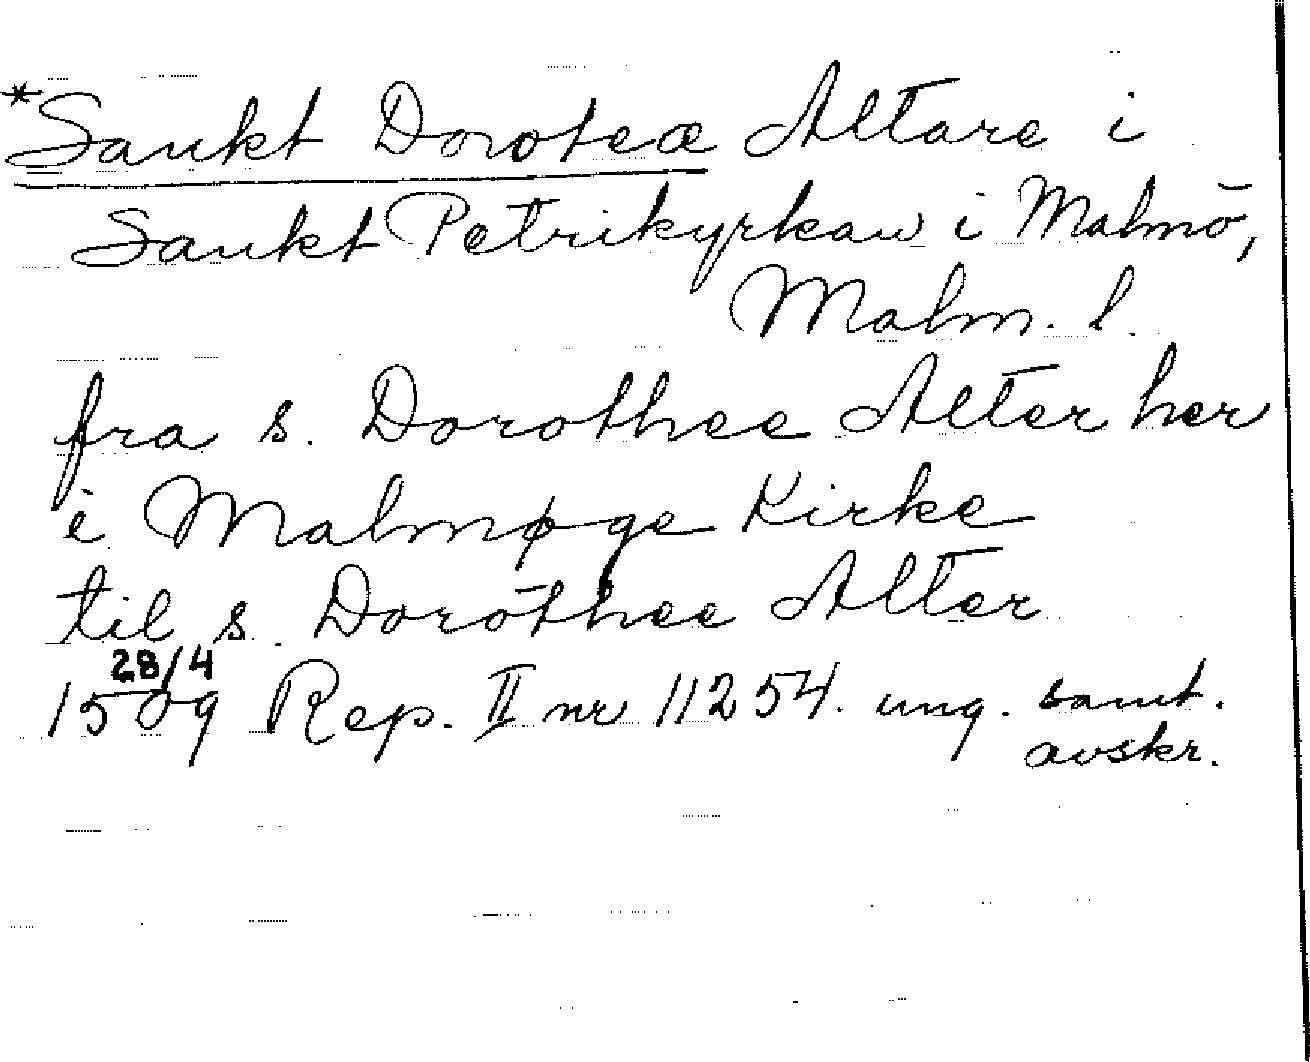 *Sankt Doroteæ Altare i
Sankt Petrikyrkan i Malmö,
Malm. l.
fra s. Dorothee Alter her
i Malmøge Kirke
til s. Dorothee Alter
28/4
1509 Rep. II nr 11254. ung. samt.
avskr.